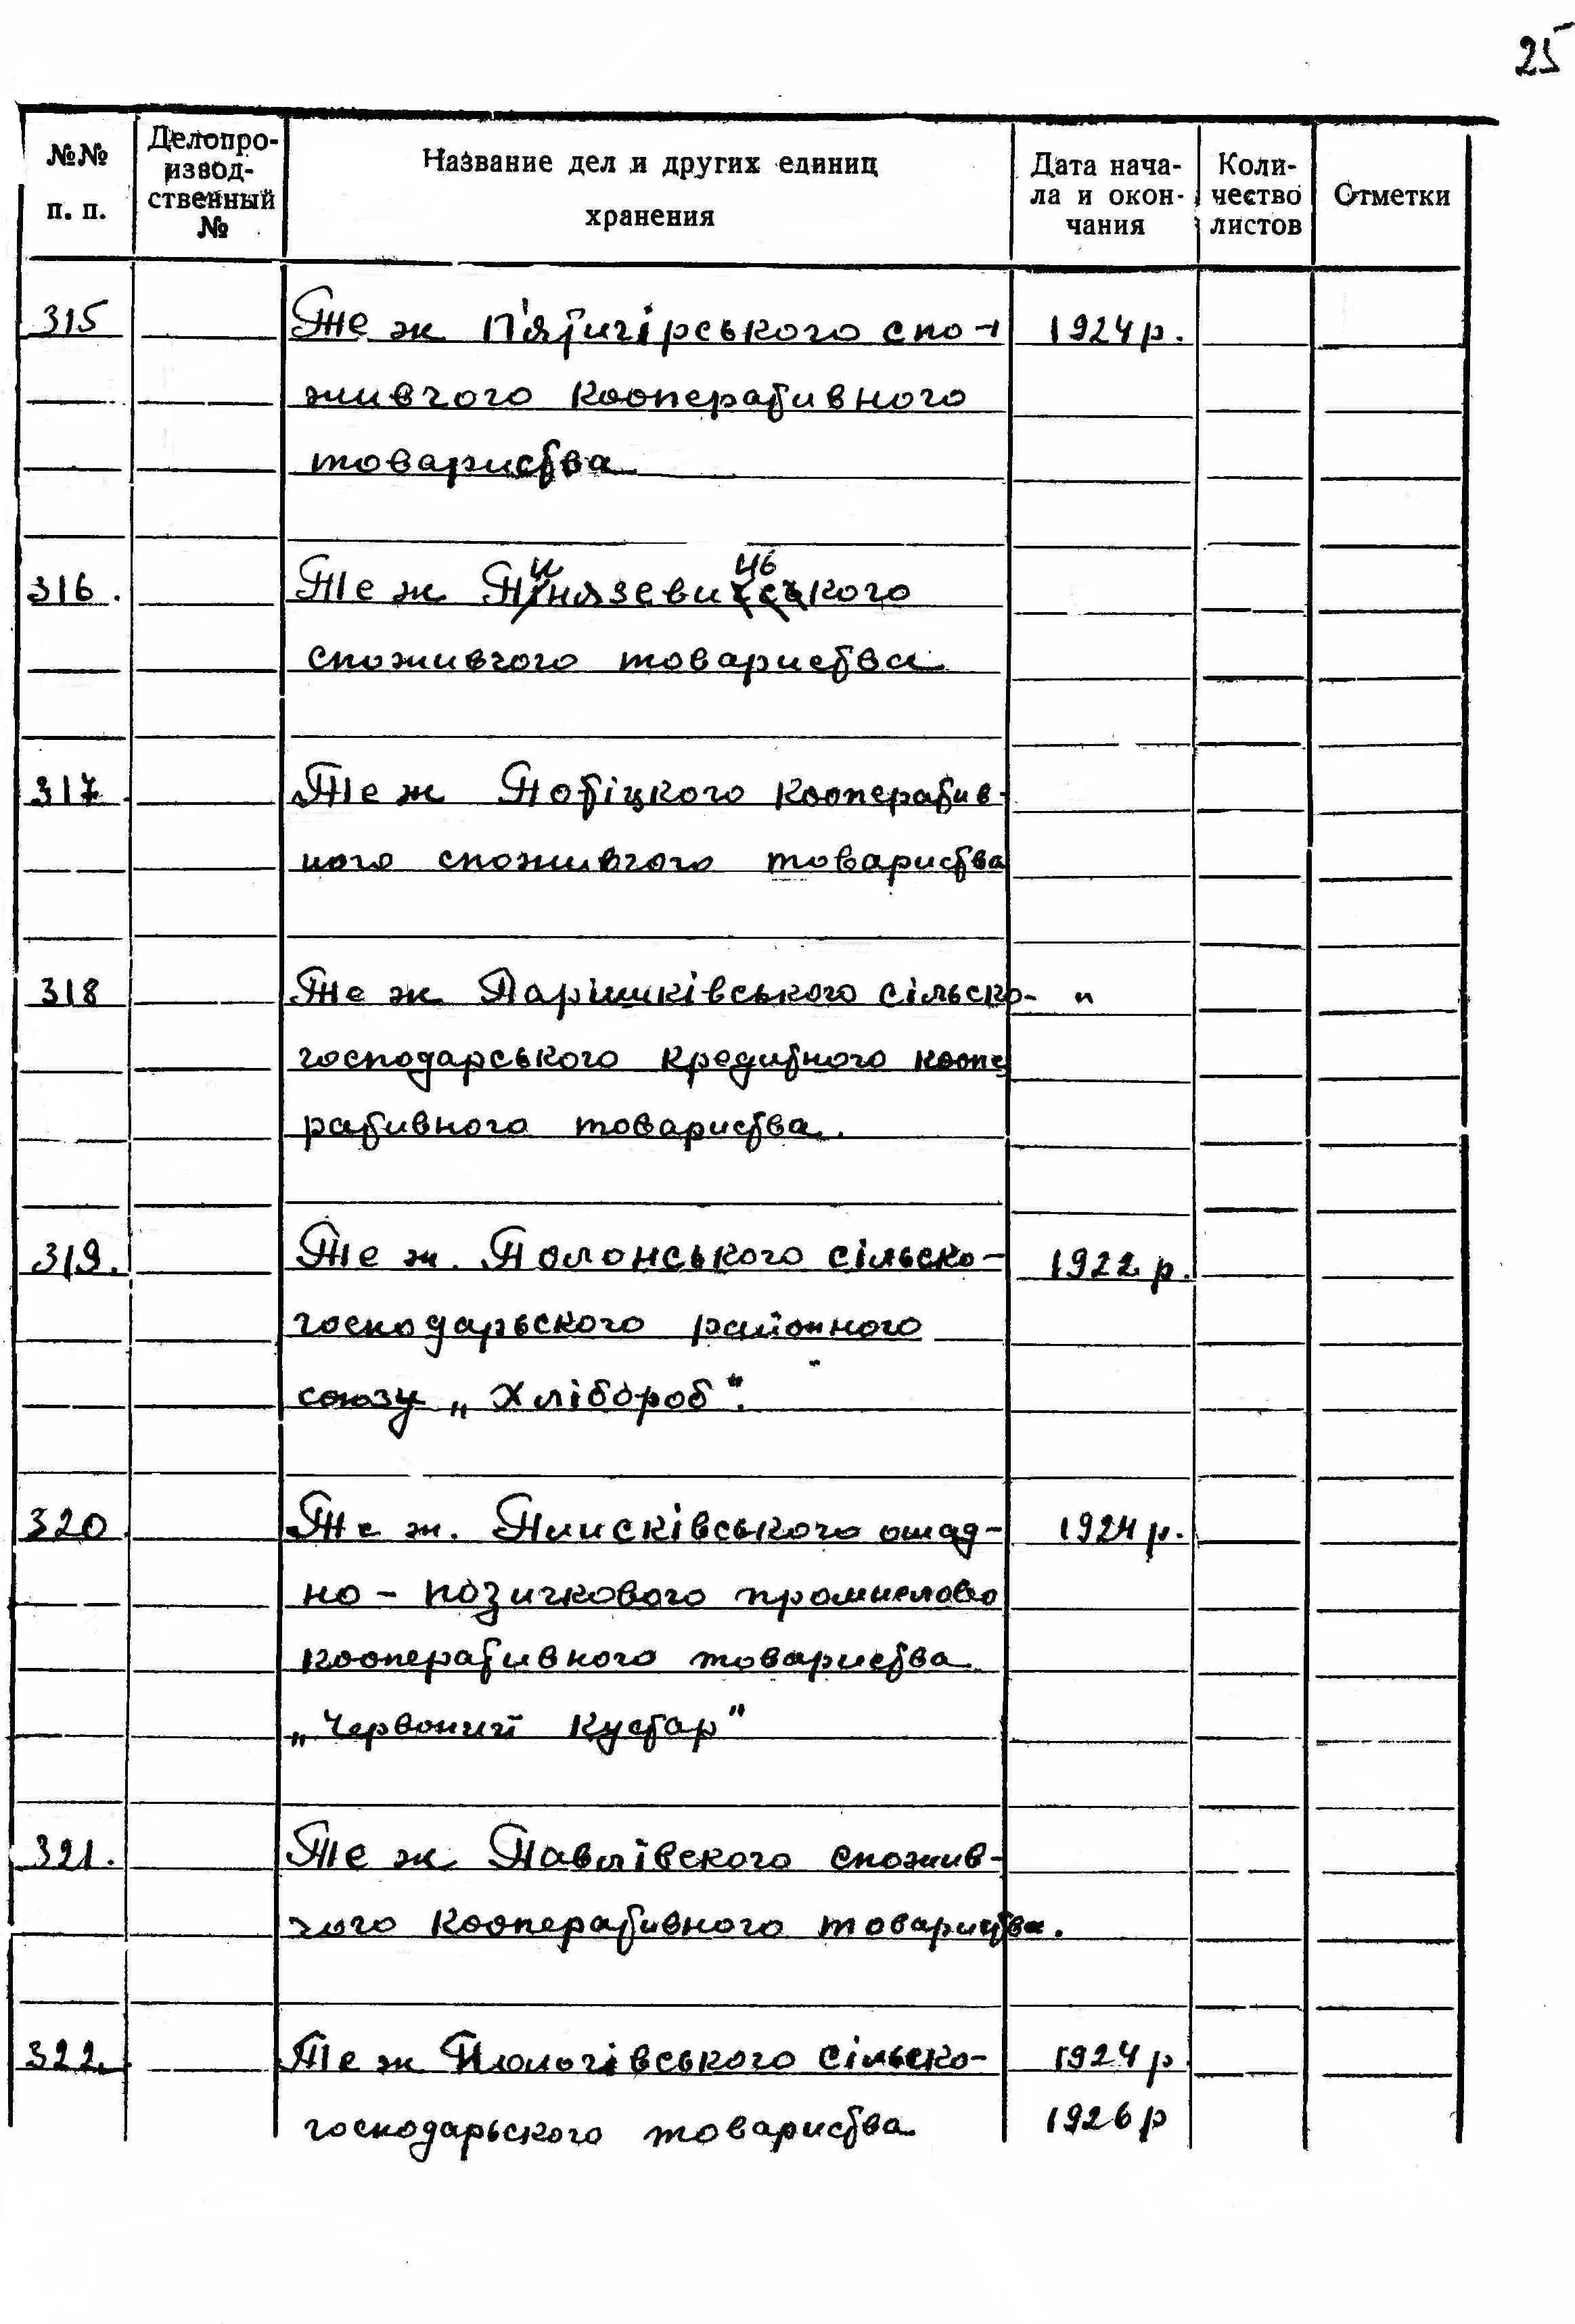 25
№№ п. п.
Делопро-
извод-
ственный
№
Название дел и других единиц
хранения
Дата нача-
ла и окон-
чания
Коли-
чество
листов
Отметки
315 Те ж П'ятигірського спо- 1924 р.
живчого кооперативного
товариства
316. Те ж кого
споживчого товариства
317. Те ж кооператив-
ного споживчого товариства
318 Те ж сільско- "
господарського кредитного коопе
ративного товариства.
319. Те ж. Полонського сільско- 1922 р.
господарьского районного
союзу „Хлібороб".
320. Те ж. Плисківського ощад- 1924 р.
но - позичкового промислово
кооперативного товариства
„Червоний Кустар"
321. Те ж Павлівского спожив-
чого кооперативного товариства.
322. Те ж сільско- 1924 р
господарьского товариства 1926 р